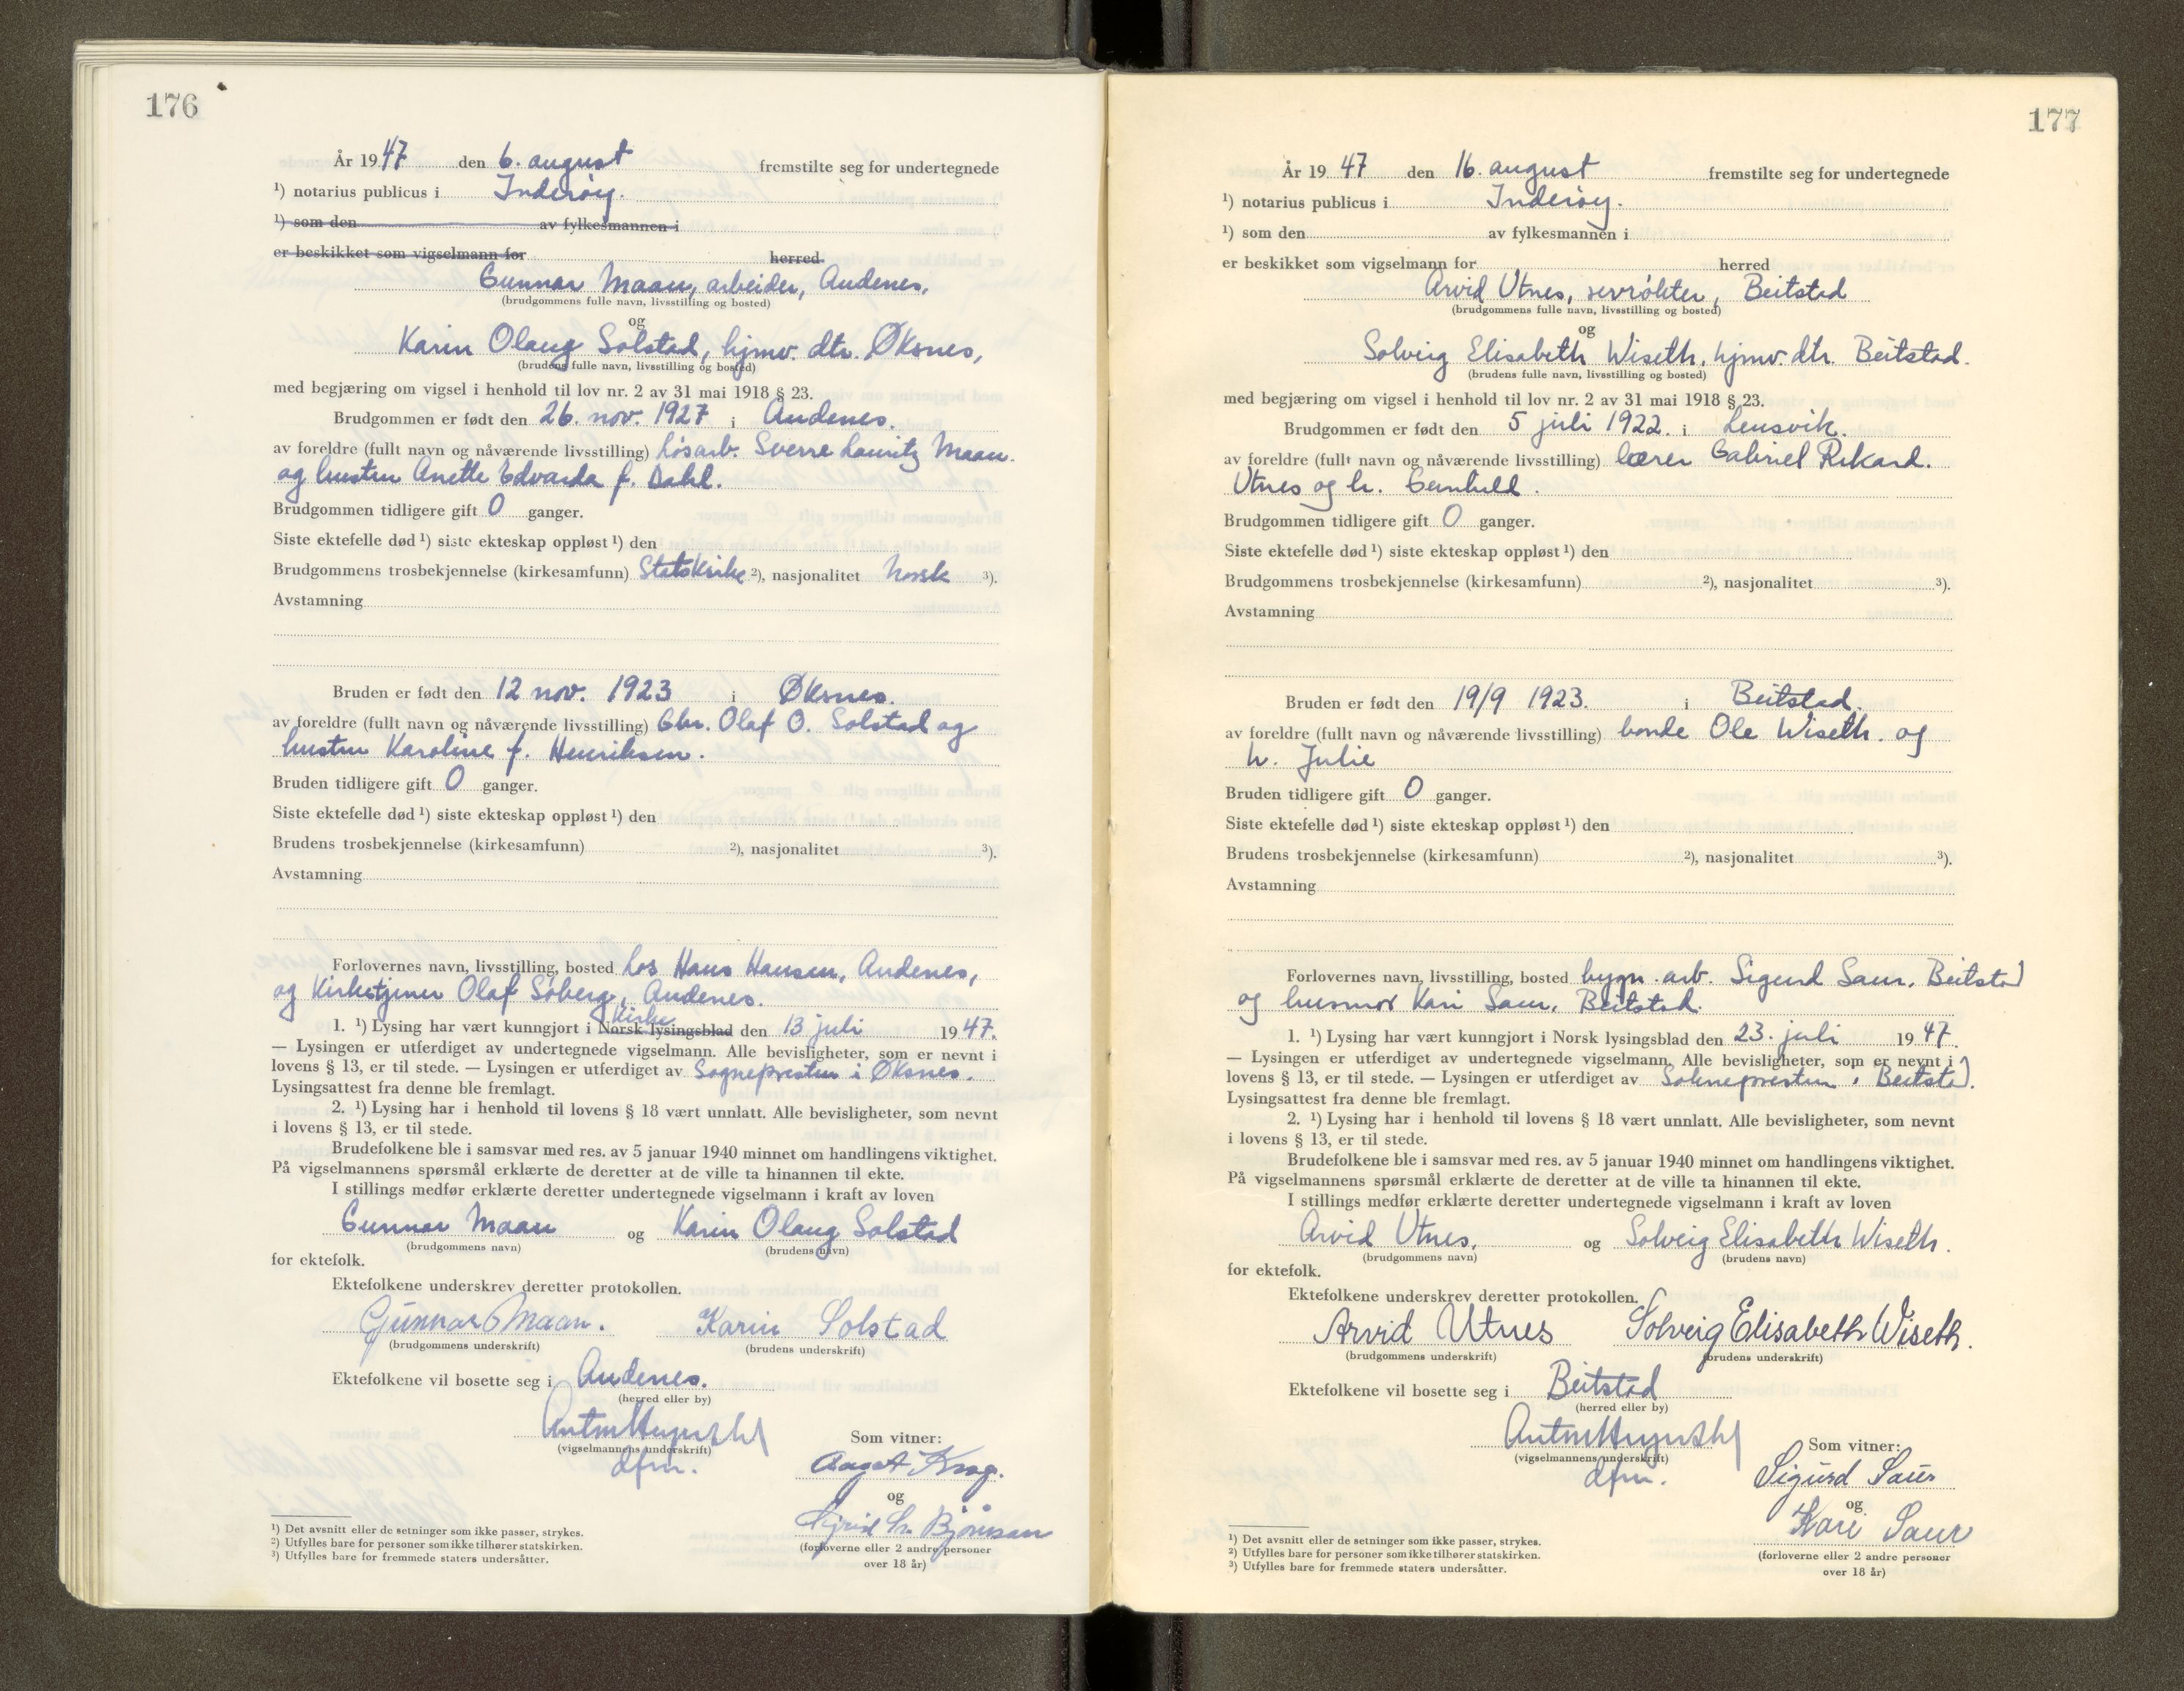 176
År 1947 den 6. august fremstilte seg for undertegnede
¹) notarius publicus i Inderøy.
¹) som den av fylkesmannen i
er beskikket som vigselmann for herred
Gunnar Maan, arbeider, Andenes,
(brudgommens fulle navn, livsstilling og bosted)
og
Karin Olaug Solstad, hjmv. dtr. Øksnes,
(brudens fulle navn, livsstilling og bosted)
med begjæring om vigsel i henhold til lov nr. 2 av 31 mai 1918 § 23.
Brudgommen er født den 26. nov. 1927 i Andenes.
av foreldre (fullt navn og nåværende livsstilling) Løsarb. Sverre Lauritz Maan
og hustru Anette Edvarda f. Dahl.
Brudgommen tidligere gift 0 ganger.
Siste ektefelle død ¹) siste ekteskap oppløst ¹) den
Brudgommens trosbekjennelse (kirkesamfunn) Statskirke ²), nasjonalitet Norsk ³).
Avstamning
Bruden er født den 12 nov. 1923 i Øksnes.
av foreldre (fullt navn og nåværende livsstilling) Gbr. Olaf O. Solstad og
hustru Karoline f. Henriksen.
Bruden tidligere gift 0 ganger.
Siste ektefelle død ¹) siste ekteskap oppløst ¹) den
Brudens trosbekjennelse (kirkesamfunn) ²), nasjonalitet ³).
Avstamning
Forlovernes navn, livsstilling, bosted Los Hans Hansen, Andenes,
og Kirketjener Olaf Søberg, Andenes.
Kirke
1. ¹) Lysing har vært kunngjort i Norsk lysingsblad den 13 juli 1947.
— Lysingen er utferdiget av undertegnede vigselmann. Alle bevisligheter, som er nevnt i
lovens § 13, er til stede. — Lysingen er utferdiget av Sognepresten i Øksnes.
Lysingsattest fra denne ble fremlagt.
2. ¹) Lysing har i henhold til lovens § 18 vært unnlatt. Alle bevisligheter, som nevnt
i lovens § 13, er til stede.
Brudefolkene ble i samsvar med res. av 5 januar 1940 minnet om handlingens viktighet.
På vigselmannens spørsmål erklærte de deretter at de ville ta hinannen til ekte.
I stillings medfør erklærte deretter undertegnede vigselmann i kraft av loven
Gunnar Maan og Karin Olaug Solstad
(brudgommens navn) (brudens navn)
for ektefolk.
Ektefolkene underskrev deretter protokollen.
Gunnar Maan. Karin Solstad
(brudgommens underskrift) (brudens underskrift)
Ektefolkene vil bosette seg i Andenes.
(herred eller by)
(vigselmannens underskrift)
dfm.
Som vitner:
August Krog.
og
Sigrid Bjørnsan
(forloverne eller 2 andre personer
over 18 år)
¹) Det avsnitt eller de setninger som ikke passer, strykes.
²) Utfylles bare for personer som ikke tilhører statskirken.
³) Utfylles bare for fremmede staters undersåtter.
177
År 1947 den 16. august fremstilte seg for undertegnede
¹) notarius publicus i Inderøy.
¹) som den av fylkesmannen i
er beskikket som vigselmann for herred
Arvid Utnes, revrøkter, Beitstad
(brudgommens fulle navn, livsstilling og bosted)
og
Solveig Elisabeth Wiseth, hjmv. dtr. Beitstad.
(brudens fulle navn, livsstilling og bosted)
med begjæring om vigsel i henhold til lov nr. 2 av 31 mai 1918 § 23.
Brudgommen er født den 5 juli 1922. i Lensvik.
av foreldre (fullt navn og nåværende livsstilling) lærer Gabriel Rikard.
Utnes og h. Gunhild.
Brudgommen tidligere gift 0 ganger.
Siste ektefelle død ¹) siste ekteskap oppløst ¹) den
Brudgommens trosbekjennelse (kirkesamfunn) ²), nasjonalitet ³).
Avstamning
Bruden er født den 19/9 1923. i Beitstad.
av foreldre (fullt navn og nåværende livsstilling) bonde Ole Wiseth. og
h. Julie
Bruden tidligere gift 0 ganger.
Siste ektefelle død ¹) siste ekteskap oppløst ¹) den
Brudens trosbekjennelse (kirkesamfunn) ²), nasjonalitet ³).
Avstamning
Forlovernes navn, livsstilling, bosted bygn. arb. Sigurd Saur, Beitstad
og husmor Kari Saur, Beitstad.
1. ¹) Lysing har vært kunngjort i Norsk lysingsblad den 23. juli 1947.
— Lysingen er utferdiget av undertegnede vigselmann. Alle bevisligheter, som er nevnt i
lovens § 13, er til stede. — Lysingen er utferdiget av Soknepresten i Beitstad.
Lysingsattest fra denne ble fremlagt.
2. ¹) Lysing har i henhold til lovens § 18 vært unnlatt. Alle bevisligheter, som nevnt
i lovens § 13, er til stede.
Brudefolkene ble i samsvar med res. av 5 januar 1940 minnet om handlingens viktighet.
På vigselmannens spørsmål erklærte de deretter at de ville ta hinannen til ekte.
I stillings medfør erklærte deretter undertegnede vigselmann i kraft av loven
Arvid Utnes, og Solveig Elisabeth Wiseth.
(brudgommens navn) (brudens navn)
for ektefolk.
Ektefolkene underskrev deretter protokollen.
Arvid Utnes Solveig Elisabeth Wiseth.
(brudgommens underskrift) (brudens underskrift)
Ektefolkene vil bosette seg i Beitstad
(herred eller by)
(vigselmannens underskrift)
dfm.
Som vitner:
Sigurd Saur
og
Kari Saur
(forloverne eller 2 andre personer
over 18 år)
¹) Det avsnitt eller de setninger som ikke passer, strykes.
²) Utfylles bare for personer som ikke tilhører statskirken.
³) Utfylles bare for fremmede staters undersåtter.